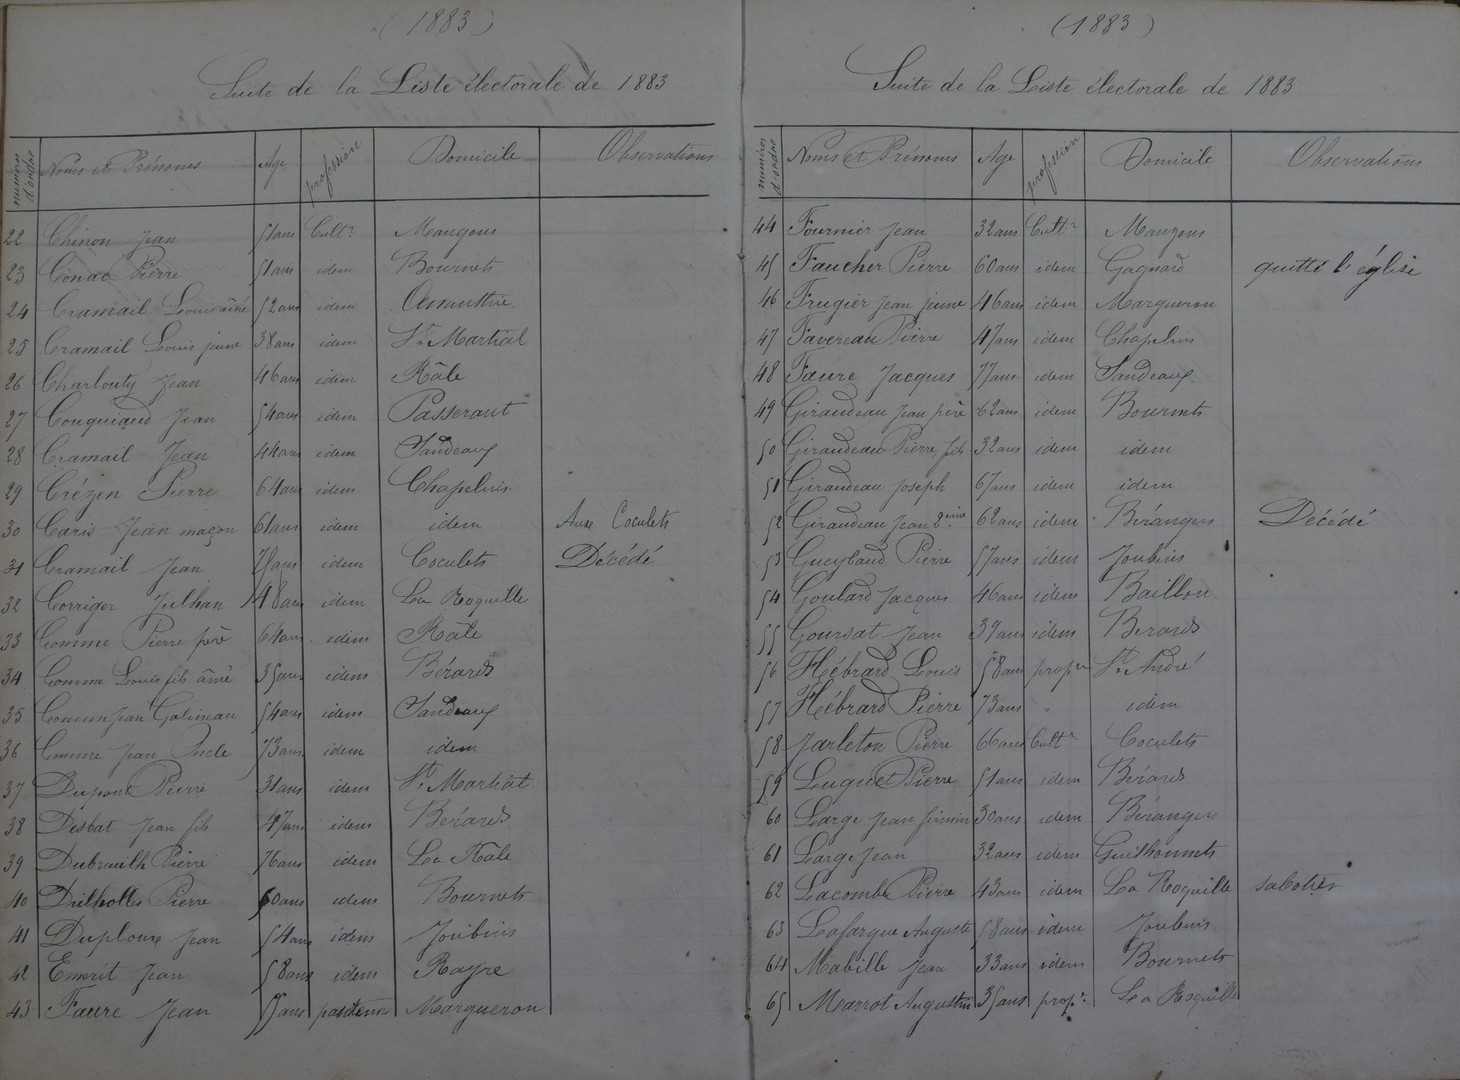 (1883)
Suite de la Liste électorale de 1883
numéros d'ordre Noms et Prénoms Age profession Domicile Observations
22 Chinon Jean 51 ans Cultr Maugons
23 Conac Pierre 51 ans idem Bournets
24 Cramail Louis aîné 52 ans idem
25 Cramail Louis jeune 38 ans idem St Martial
26 Charlouty Jean 46 ans idem Râle
27 Couquiaud Jean 54 ans idem Passeraut
28 Cramail Jean 44 ans idem Sandeaux
29 Crézen Pierre 64 ans idem Chapelins
30 Caris Jean maçon 61 ans idem idem Aux Coculets
31 Cramail Jean ans idem Coculets Décédé
32 Corriger Julhan 48 ans idem La Roquille
33 Comme Pierre père 64 ans idem Râle
34 Comme Louis fils aîné 35 ans idem Bérards
35 Comme Jean Galineau 54 ans idem Sandeaux
36 Comme Jean Oncle 73 ans idem idem
37 Dupont Pierre 31 ans idem St Martial
38 Desbat Jean fils 47 ans idem Bérards
39 Dubreuilh Pierre 76 ans idem La Râle
40 Drilholles Pierre 60 ans idem Bournets
41 Duploux Jean 54 ans idem Joubinis
42 Emerit Jean 58 ans idem Rayre
43 Faure Jean ans Margueron
(1883)
Suite de la Liste électorale de 1883
numéros d'ordre Noms et Prénoms Age profession Domicile Observations
44 Fournier Jean 32 ans Cultr Mauzens
45 Faucher Pierre 60 ans idem Gagnard quitté l'église
46 Frugier Jean jeune 46 ans idem Margueron
47 Favereau Pierre 47 ans idem Chapelins
48 Faure Jacques 77 ans idem Sandeaux
49 Giraudeau Jean père 62 ans idem Bournets
50 Giraudeau Pierre fils 32 ans idem idem
51 Giraudeau Joseph 67 ans idem idem
52 Giraudeau Jean 2ème 62 ans idem Bérangers Décédé
53 Gueylaud Pierre 57 ans idem Joubinis
54 Goulard Jacques 46 ans idem Baillon
55 Goursat Jean 39 ans idem Berards
56 Hébrard Louis 58 ans propre St André
57 Hébrard Pierre 73 ans " idem
58 Jarleton Pierre 66 ans Cultr Coculets
59 Luguet Pierre 51 ans idem Berards
60 Large Jean firmin 30 ans idem Bérangers
61 Large Jean 32 ans idem Guilhonnets
62 Lacombe Pierre 43 ans idem La Roquille sabotier
63 Lafargue Auguste 58 ans idem Joubinis
64 Mabille Jean 33 ans idem Bournets
65 Marrot Augustin 35 ans propr. La Roquille